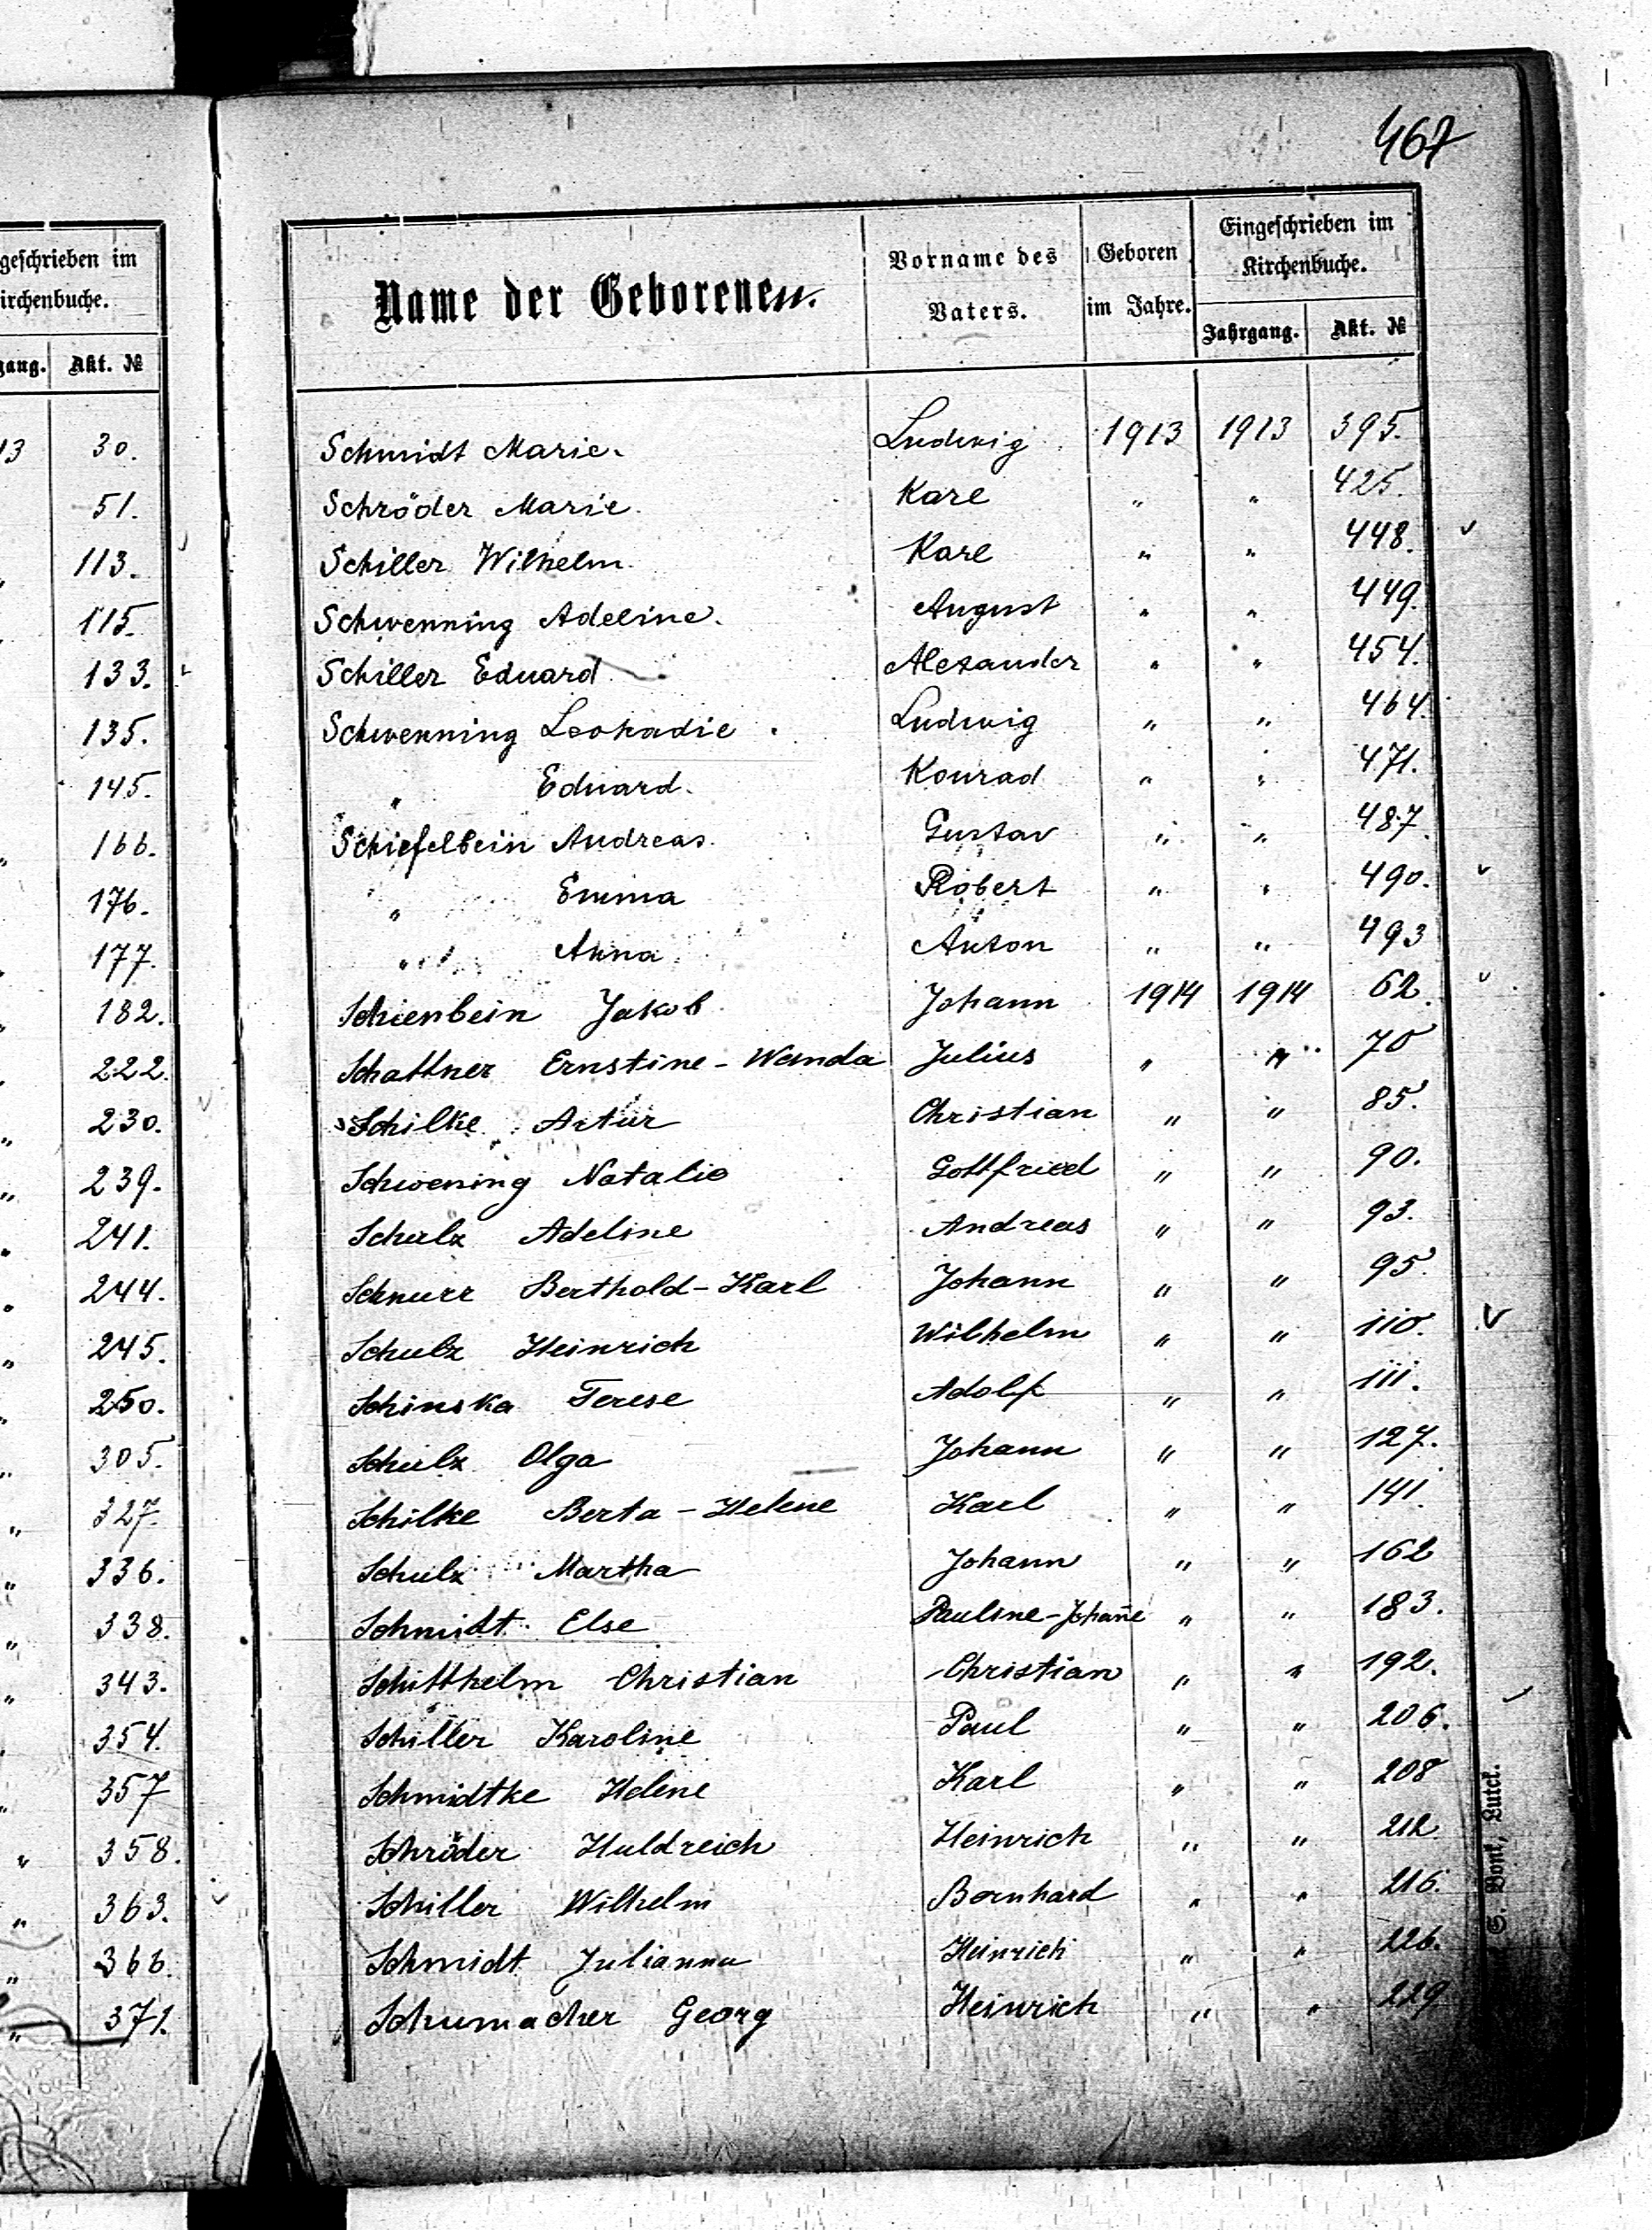 467
geschrieben im
irchenbuche.
gang. Akt. №
13 30.
51.
" 113.
" 115.
133.
135.
145.
" 166.
176.
" 177.
" 182.
" 222.
" 230.
" 239.
" 241.
" 244.
" 245.
" 250.
" 305.
" 327.
" 336.
" 338.
" 343.
" 354.
" 357
" 358.
" 363.
" 366.
" 371.
Name der Geborenen. Vorname des Vaters. Geboren im Jahre. Eingeschrieben im Kirchenbuche.
Jahrgang. Akt. №
Schmidt Marie. Ludwig 1913 1913 395.
Schröder Marie. Karl " " 425.
Schiller Wilhelm. Karl " " 448.
Schwenning Adeline. August " " 449.
Schiller Eduard. Alexander " " 454.
Schwenning Leokadie. Ludwig " " 464.
" Eduard. Konrad " " 471.
Schiefelbein Andreas. Gustav " " 487.
" Emma Robert " " 490.
" Anna Anton " " 493
Schienbein Jakob Johann 1914 1914 62.
Schattner Ernstine-Wanda Julius " " 70
Schilke Artur Christian " " 85.
Schwening Natalie Gottfried " " 90.
Schulz Adeline Andreas " " 93.
Schnurr Berthold-Karl Johann " " 95.
Schulz Heinrich Wilhelm " " 110.
Schinska Terese Adolf " " 111.
Schulz Olga Johann " " 127.
Schilke Berta-Helene Karl " " 141.
Schulz Martha Johann " " 162
Schmidt Else Pauline-Johañe " " 183.
Schitthelm Christian Christian " " 192.
Schiller Karoline Paul " " 206.
Schmidtke Helene Karl " " 208
Schröder Huldreich Heinrich " " 212
Schiller Wilhelm Bernhard " " 216.
Schmidt Julianna Heinrich " " 226.
Schumacher Georg Heinrich " " 229
S. Bonk, Luck.